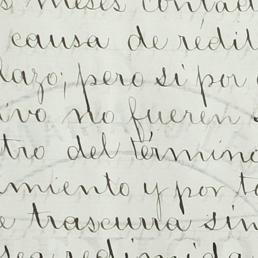 s meses contad
causa de rédit
lazo; pero si por
ivo no fueren s
tro del término
miento y por to
e trascurra sin
sea redimida